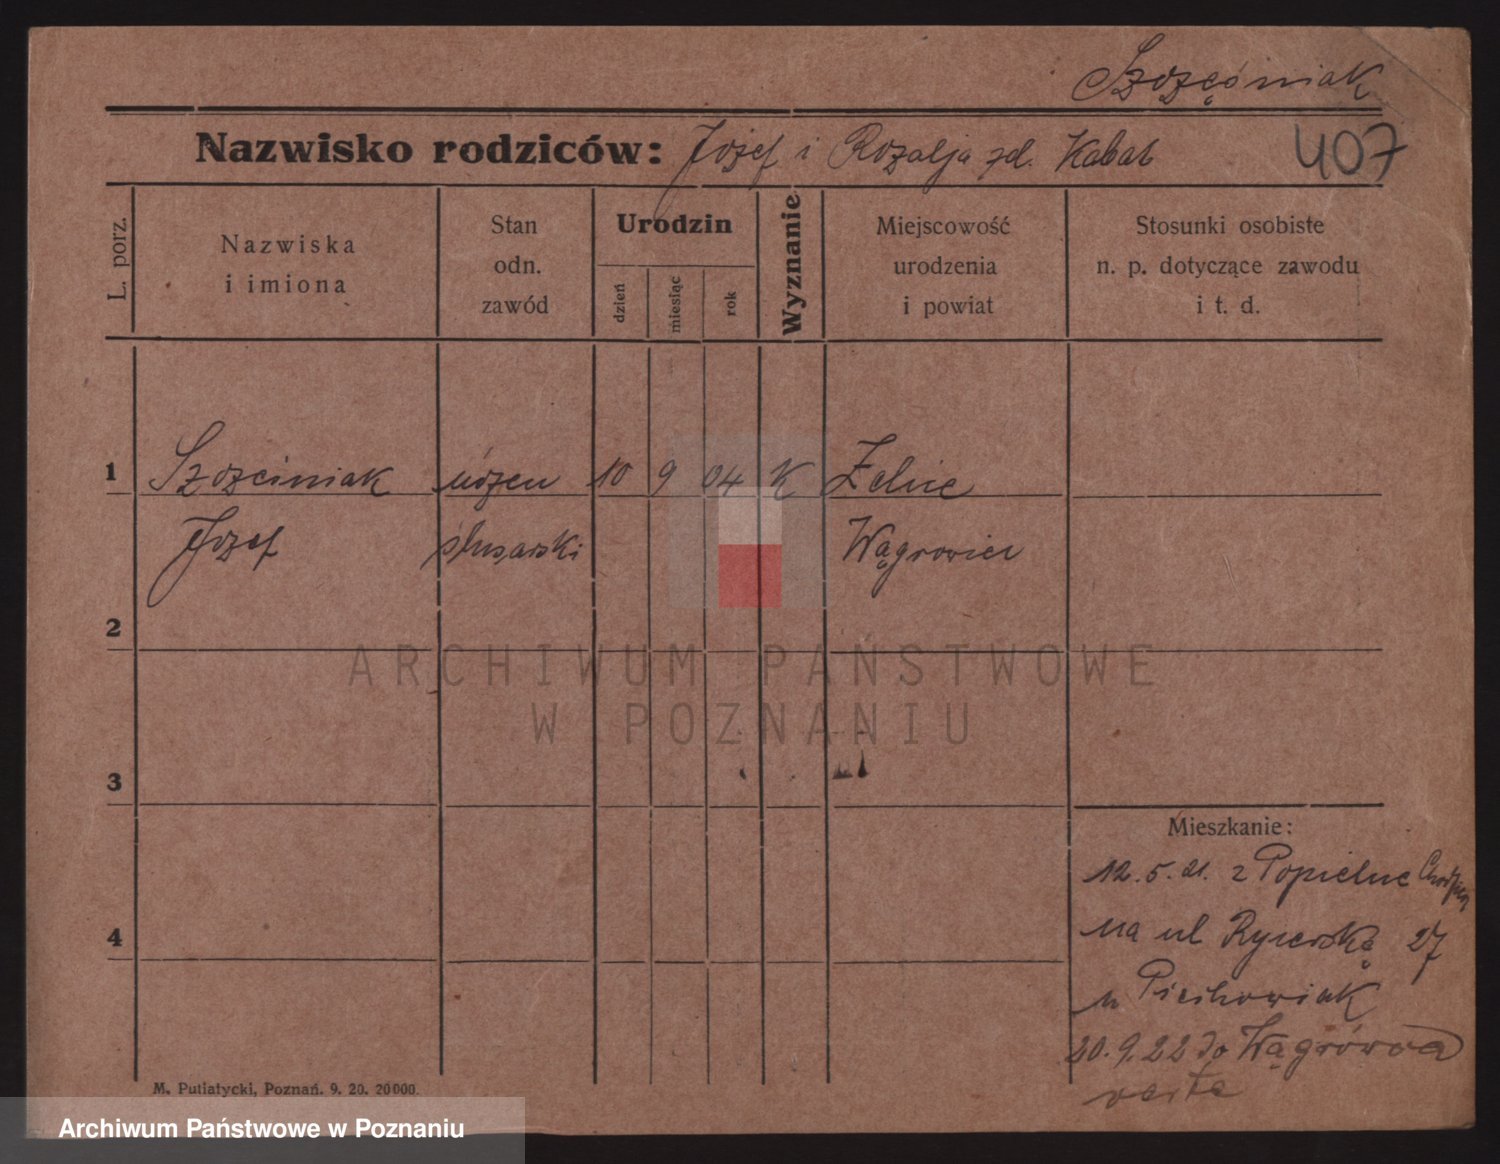 Szczęśniak
Nazwisko rodziców: Józef i Rozalja zd. Kabat
407
L. porz.
Nazwiska
i imiona
Stan
odn.
zawód
Urodzin
dzień
miesiąc
rok
Wyznanie
Miejscowość
urodzenia
i powiat
Stosunki osobiste
n. p. dotyczące zawodu
i t. d.
1 Szczeiniak uczeń 10 9 04 K Żelice
Józef ślusarski Wągrowiec
2
3
4
Mieszkanie:
12.5.21. z Popielne
na ul Rycerską 27
u Piechowiak
20.9.22 do Wągrówca
M. Putiatycki, Poznań. 9. 20. 20000.
ARCHIWUM PAŃSTWOWE
W POZNANIU
Archiwum Państwowe w Poznaniu